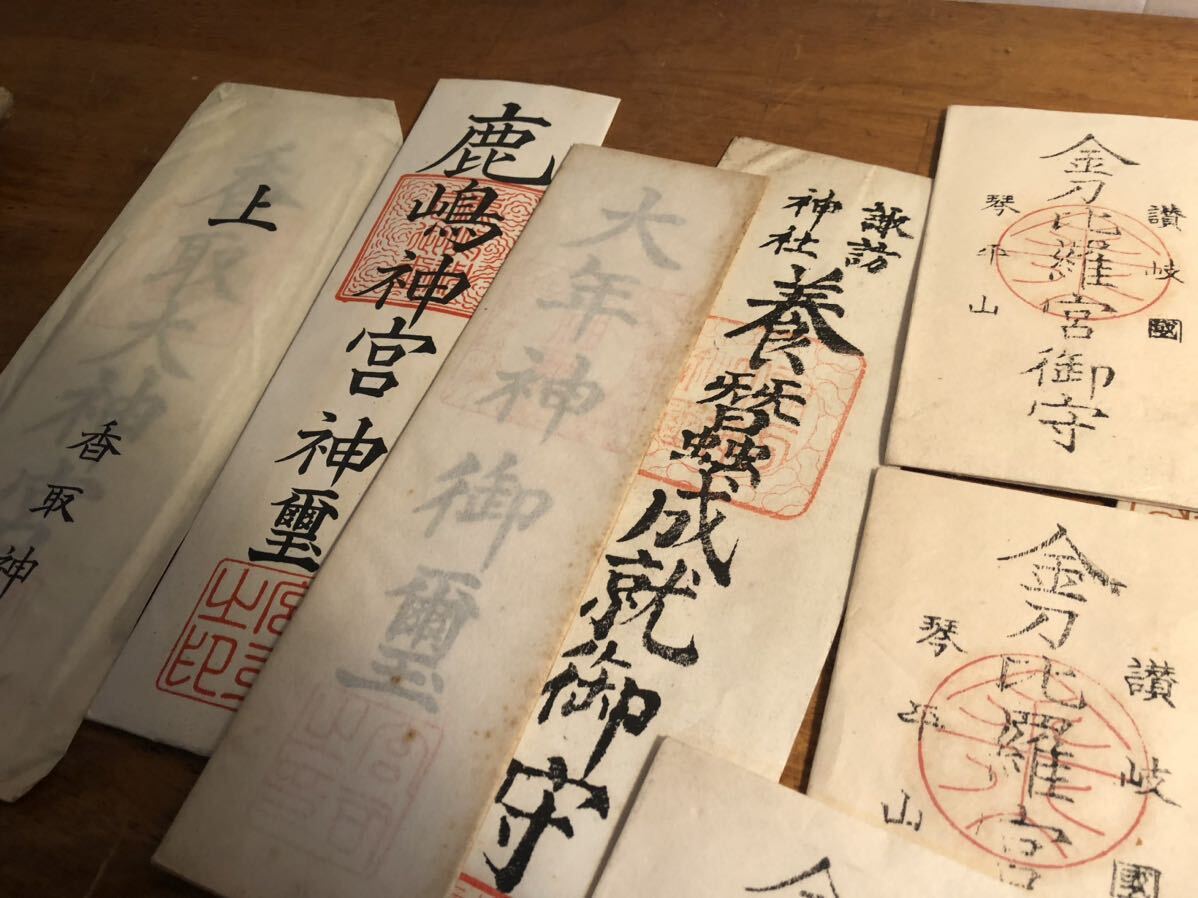 上
香取大神宮
香取神
鹿嶋神宮神璽
宮之印
大年神御璽
諏訪
神社
養蠶成就御守
讃岐國
金刀比羅宮御守
琴平山
讃岐國
金刀比羅宮
琴平山
金